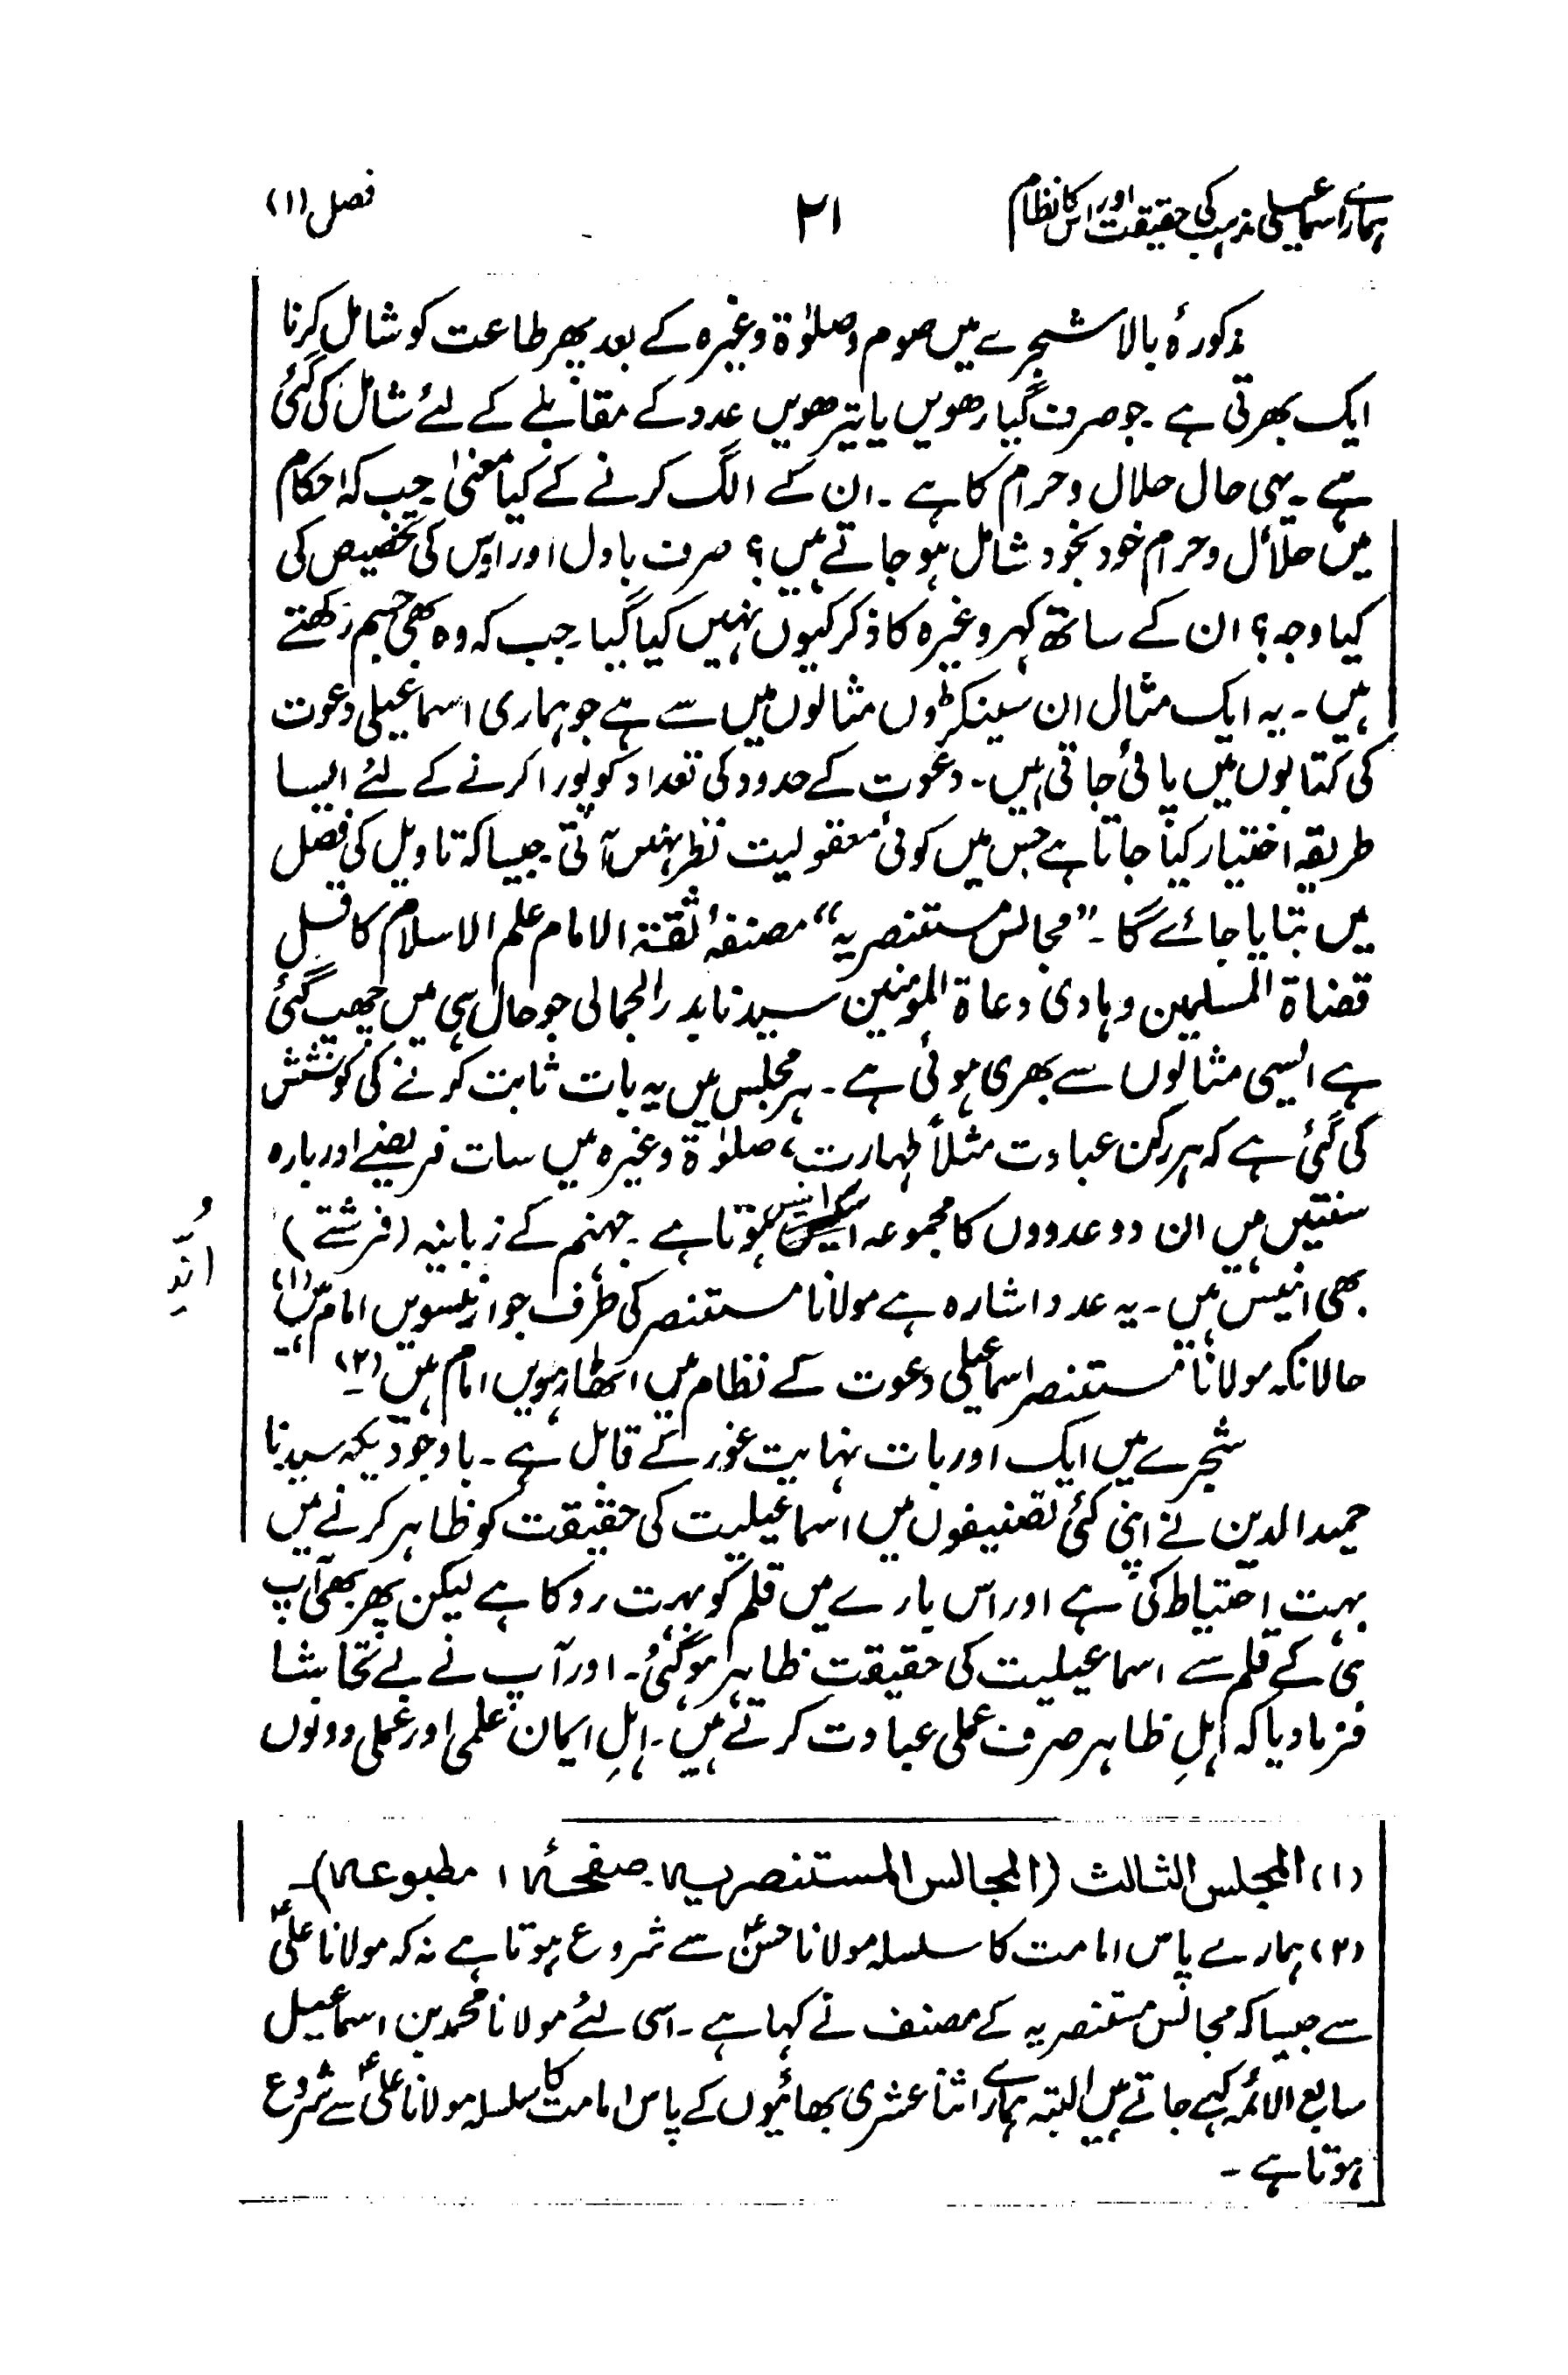 ہمارے اسماعیلی مذہب کی حقیقت اور اس کا نظام
۲۱
فصل (۱)
مذکورۂ بالا شجرے میں صوم و صلوٰۃ وغیرہ کے بعد پھر طاعت کو شامل کرنا
ایک بھرتی ہے ۔ جو صرف گیارھویں یا تیرھویں عدد کے مقابلے کے لئے شامل کی گئی
ہے ۔ یہی حال حلال و حرام کا ہے ۔ ان کے الگ کرنے کے کیا معنیٰ جب کہ احکام
میں حلال و حرام خود بخود شامل ہو جاتے ہیں ؟ صرف بادل اور اوس کی تخصیص کی
کیا وجہ ؟ ان کے ساتھ کہر وغیرہ کا ذکر کیوں نہیں کیا گیا ۔ جب کہ وہ بھی جسم رکھتے
ہیں ۔ یہ ایک مثال ان سینکڑوں مثالوں میں سے ہے جو ہماری اسماعیلی دعوت
کی کتابوں میں پائی جاتی ہیں ۔ دعوت کے حدود کی تعداد کو پورا کرنے کے لئے ایسا
طریقہ اختیار کیا جاتا ہے جس میں کوئی معقولیت نظر نہیں آتی ۔ جیسا کہ تاویل کی فصل
میں بتایا جائے گا ۔ ”مجالس مستنصریہ“ مصنفۂ ثقۃ الامام علم الاسلام کافل
قضاۃ المسلمین و ہادی دعاۃ المومنین سیدنا بدر الجمالی جو حال ہی میں چھپ گئی
ہے ایسی مثالوں سے بھری ہوئی ہے ۔ ہر مجلس میں یہ بات ثابت کرنے کی کوشش
کی گئی ہے کہ ہر رکن عبادت مثلاً طہارت، صلوٰۃ وغیرہ میں سات فریضے اور بارہ
سنتیں ہیں ان دو عددوں کا مجموعہ انیس ہوتا ہے ۔ جہنم کے زبانیہ (فرشتے)
بھی انیس ہیں ۔ یہ عدد اشارہ ہے مولانا مستنصر کی طرف جو انیسویں امام ہیں (۱)
حالانکہ مولانا مستنصر اسماعیلی دعوت کے نظام میں اٹھارہویں امام ہیں (۲)۔
شجرے میں ایک اور بات نہایت غور کے قابل ہے ۔ باوجودیکہ سیدنا
حمید الدین نے اپنی کئی تصنیفوں میں اسماعیلیت کی حقیقت کو ظاہر کرنے میں
بہت احتیاط کی ہے اور اس بارے میں قلم کو بہت روکا ہے لیکن پھر بھی آپ
ہی کے قلم سے اسماعیلیت کی حقیقت ظاہر ہو گئی ۔ اور آپ نے بے تحاشا
فرما دیا کہ اہلِ ظاہر صرف عملی عبادت کرتے ہیں ۔ اہلِ ایمان علمی اور عملی دونوں
(۱) المجلس الثالث (المجالس المستنصریہ ۔ صفحہ ۱ مطبوعہ)۔
(۲) ہمارے پاس امامت کا سلسلہ مولانا حسنؑ سے شروع ہوتا ہے نہ کہ مولانا علیؑ
سے جیسا کہ مجالس مستنصریہ کے مصنف نے کہا ہے ۔ اسی لئے مولانا محمد بن اسماعیل
سابع الائمہ کہے جاتے ہیں البتہ ہمارے اثنا عشری بھائیوں کے پاس امامت کا سلسلہ مولانا علیؑ سے شروع
ہوتا ہے ۔